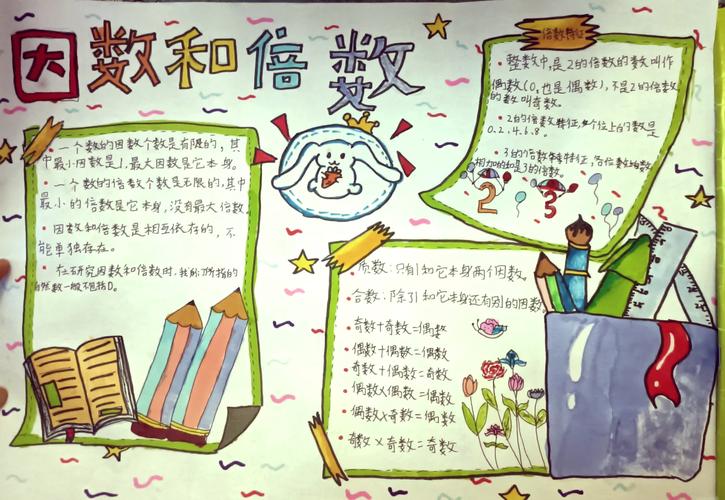 因数和倍数
•一个数的因数个数是有限的,其
中最小因数是1,最大因数是它本身。
•一个数的倍数个数是无限的,其中
最小的倍数是它本身,没有最大倍数。
•因数和倍数是相互依存的,不
能单独存在。
•在研究因数和倍数时,我们所指的
自然数一般不包括0。
倍数特征
•整数中,是2的倍数的数叫作
偶数(0,也是偶数),不是2的倍数
的数叫奇数。
•2的倍数特征,个位上的数是
0.2.4.6.8。
•3的倍数特征,各位数的数
相加的和是3的倍数。
2 3
•质数:只有1和它本身两个因数。
•合数:除了1和它本身还有别的因数
•奇数+奇数=偶数
•偶数+偶数=偶数
•奇数+偶数=奇数
•偶数×偶数=偶数
•偶数×奇数=偶数
•奇数×奇数=奇数